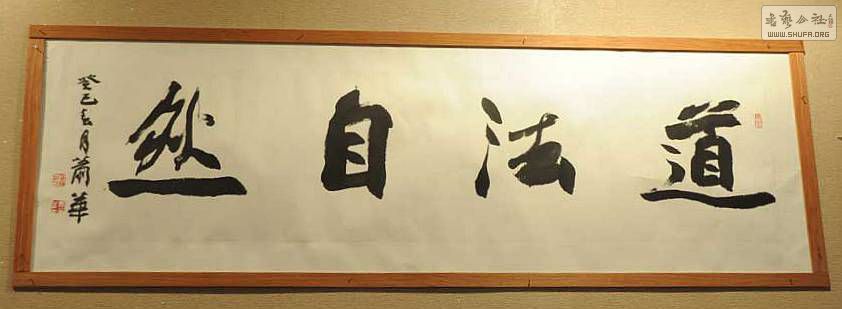 道法自然
癸巳春月蕭華
書藝公社
WWW.SHUFA.ORG